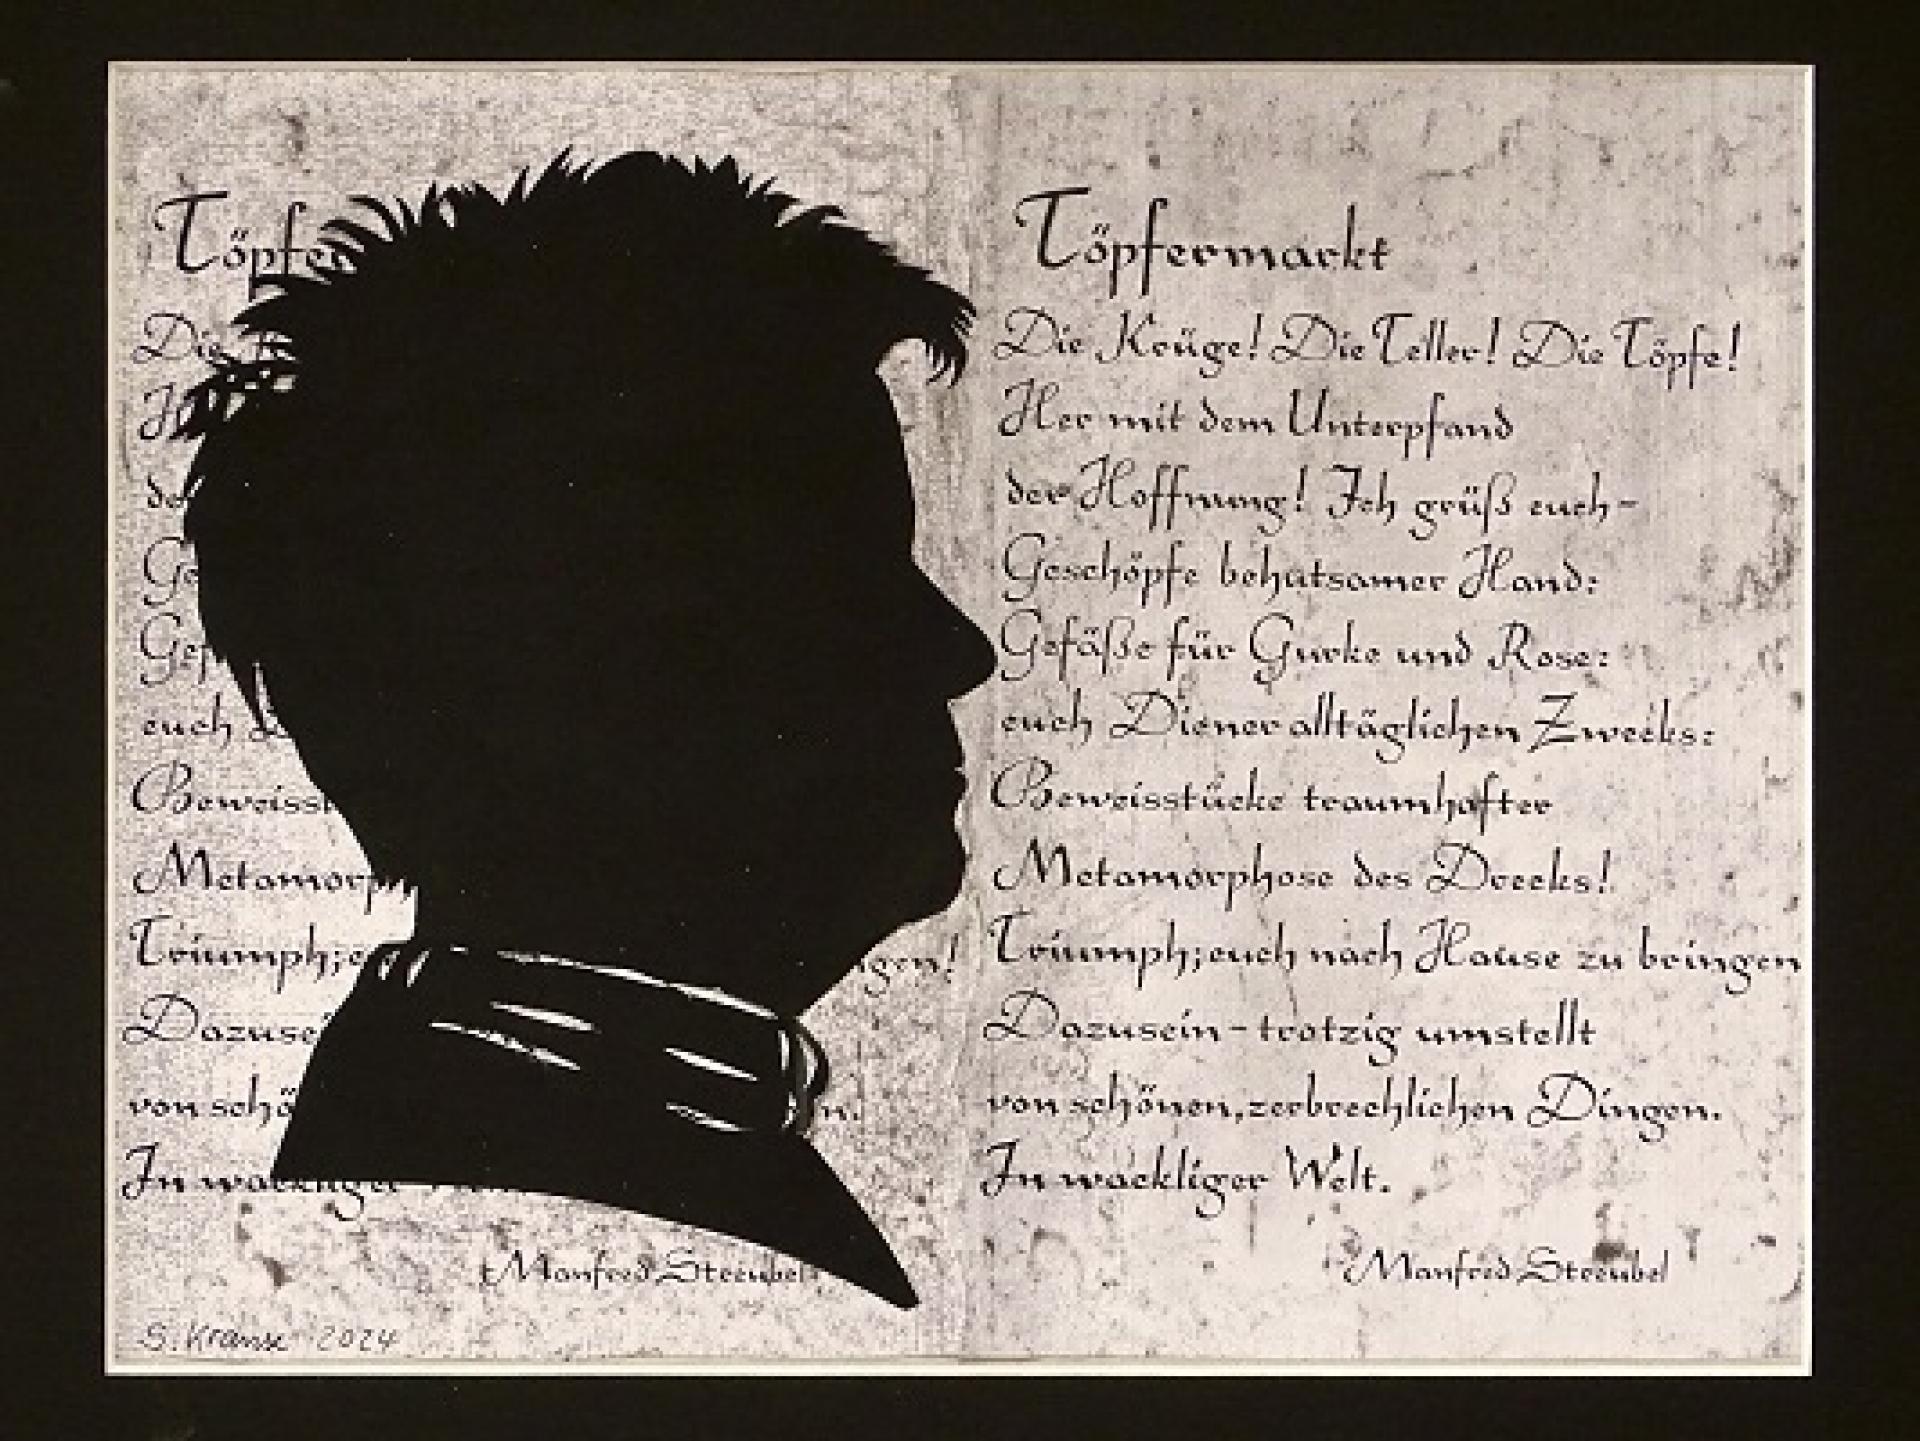 Töpfe
Die
euch
Beweisst
Metamorp
Triumph; e gen!
Dazusei
von schö n.
In wackliger
Manfred Streubel
S. Krause 2024
Töpfermarkt
Die Krüge! Die Teller! Die Töpfe!
Her mit dem Unterpfand
der Hoffnung! Ich grüß euch-
Geschöpfe behutsamer Hand:
Gefäße für Gurke und Rose:
euch Diener alltäglichen Zwecks:
Beweisstücke traumhafter
Metamorphose des Drecks!
Triumph; euch nach Hause zu bringen
Dazusein - trotzig umstellt
von schönen, zerbrechlichen Dingen.
In wackliger Welt.
Manfred Streubel